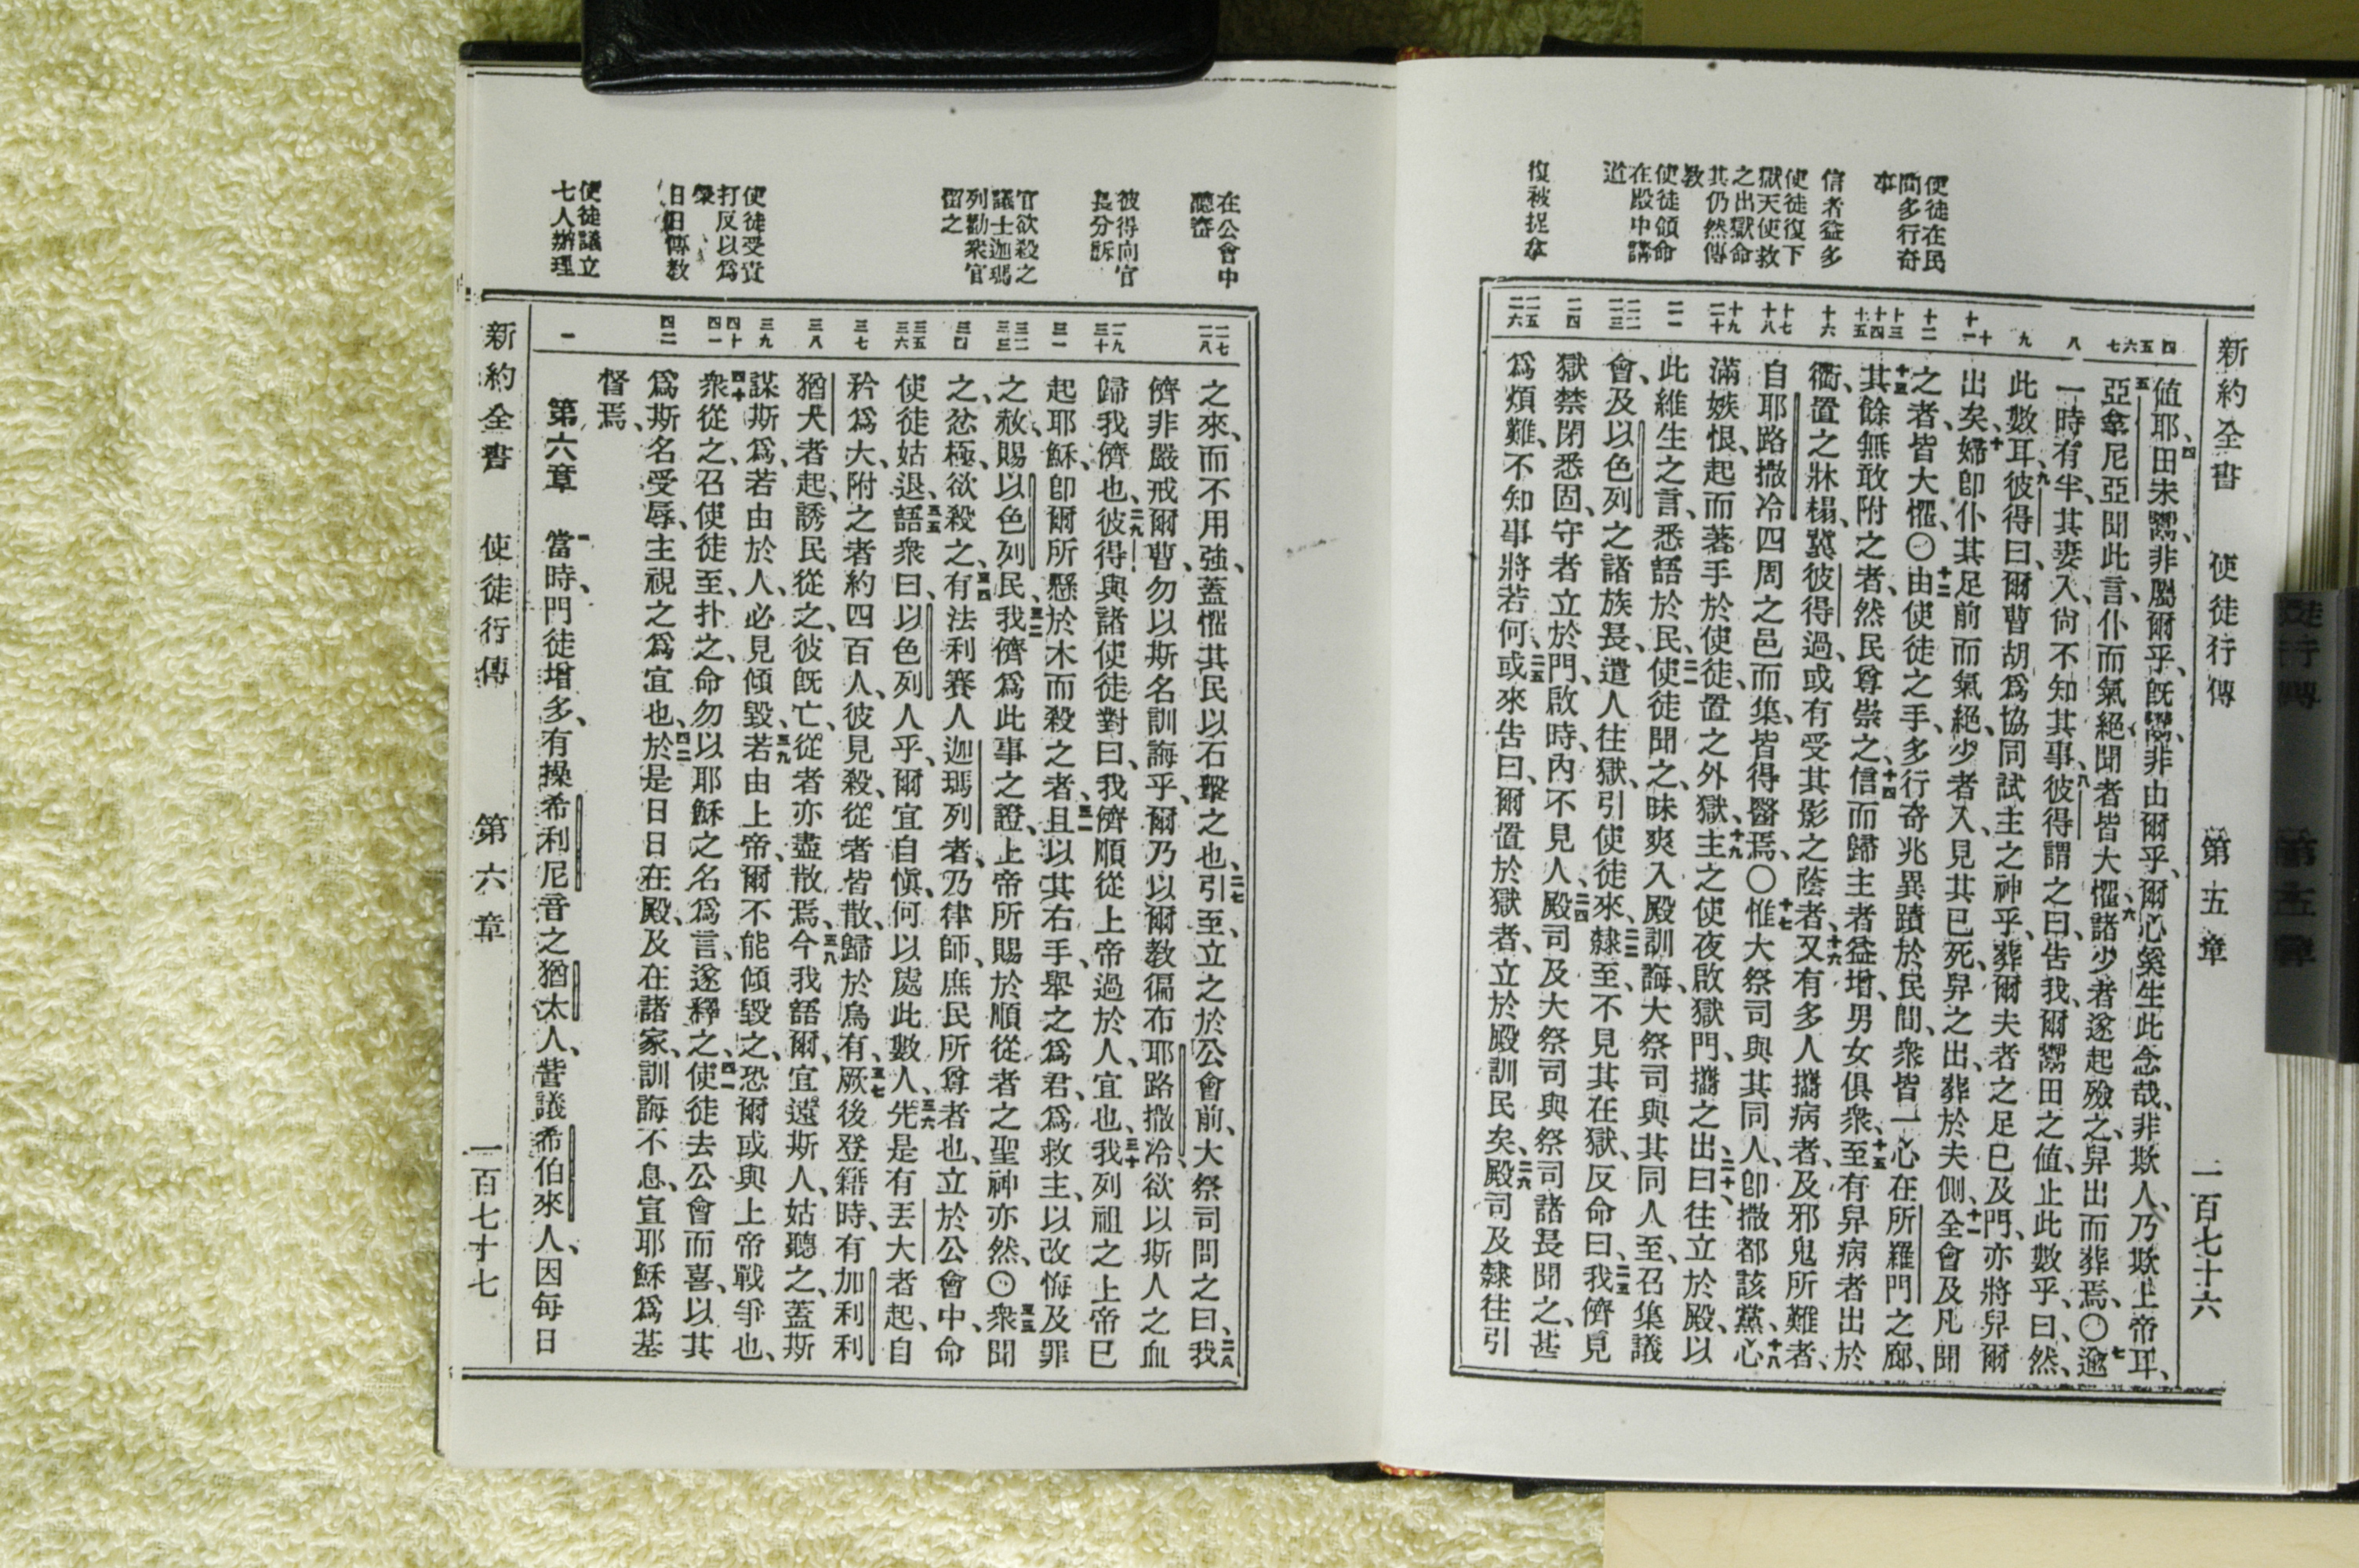 新約全書 使徒行傳 第五章 一百七十六
使徒在民
間多行奇
事
信者益多
使徒復下
獄天使救
之出獄命
其仍然傳
教
使徒領命
在殿中講
道
復被捉拿
四五六七 八 九 十十一 十二 十三十四十五 十六 十七十八 十九二十 二一 二二二三 二四 二五二六
值耶、四田未鬻、非屬爾乎、既鬻、非由爾乎、爾心奚生此念哉、非欺人、乃欺上帝耳、
五亞拿尼亞聞此言、仆而氣絕、聞者皆大懼、六諸少者遂起殮之、舁出而葬焉、〇七逾
一時有半、其妻入、尙不知其事、八彼得謂之曰、告我、爾鬻田之值、止此數乎、曰、然、
此數耳、九彼得曰、爾曹胡爲協同試主之神乎、葬爾夫者之足已及門、亦將舁爾
出矣、十婦卽仆其足前而氣絕、少者入、見其已死、舁之出、葬於夫側、十一全會及凡聞
之者、皆大懼、〇十二由使徒之手、多行奇兆異蹟於民間、衆皆一心在所羅門之廊、
十三其餘無敢附之者、然民尊崇之、十四信而歸主者益增、男女俱衆、十五至有舁病者出於
衢、置之牀榻、冀彼得過、或有受其影之陰者、十六又有多人攜病者、及邪鬼所難者、
自耶路撒冷四周之邑而集、皆得醫焉、〇十七惟大祭司與其同人、卽撒都該黨、心十八
滿嫉恨、起而著手於使徒、置之外獄、十九主之使夜啟獄門、攜之出、二十曰、往立於殿、以
此維生之言、悉語於民、二一使徒聞之、昧爽入殿訓誨、大祭司與其同人至、召集議
會、及以色列之諸族長、遣人往獄、引使徒來、二二隸至、不見其在獄、反命曰、二三我儕見
獄禁閉悉固、守者立於門、啟時、內不見人、二四殿司及大祭司與祭司諸長聞之、甚
爲煩難、不知事將若何、二五或來告曰、爾置於獄者、立於殿訓民矣、二六殿司及隸往引
在公會中
聽審
彼得向官
長分訴
官欲殺之
議士迦瑪
列勸衆官
留之
使徒受責
打反以爲
榮
日日傳教
使徒議立
七人辦理
二七二八 二九三十 三一 三二三三 三四 三五三六 三七 三八 三九 四十四一 四二 一
之來、而不用強、蓋懼其民以石擊之也、二七引至、立之於公會前、大祭司問之曰、二八我
儕非嚴戒爾曹、勿以斯名訓誨乎、爾乃以爾教徧布耶路撒冷、欲以斯人之血
歸我儕也、二九彼得與諸使徒對曰、我儕順從上帝過於人、宜也、三十我列祖之上帝已
起耶穌、卽爾所懸於木而殺之者、三一且以其右手舉之爲君、爲救主、以改悔及罪
之赦、賜以色列民、三二我儕爲此事之證、上帝所賜於順從者之聖神亦然、〇三三衆聞
之、忿極、欲殺之、三四有法利賽人迦瑪列者、乃律師、庶民所尊者也、立於公會中、命
使徒姑退、三五語衆曰、以色列人乎、爾宜自愼、何以處此數人、三六先是有丟大者起、自
矜爲大、附之者約四百人、彼見殺、從者皆散、歸於烏有、三七厥後登籍時、有加利利
猶大者起、誘民從之、彼旣亡、從者亦盡散焉、三八今我語爾、宜遠斯人、姑聽之、蓋斯
謀斯爲、若由於人、必見傾毀、三九若由上帝、爾不能傾毀之、恐爾或與上帝戰爭也、
四十衆從之、召使徒至、扑之、命勿以耶穌之名爲言、遂釋之、四一使徒去公會而喜、以其
爲斯名受辱、主視之爲宜也、四二於是日日在殿、及在諸家、訓誨不息、宣耶穌爲基
督焉、
第六章 一當時、門徒增多、有操希利尼音之猶太人、訾議希伯來人、因每日
新約全書 使徒行傳 第六章 一百七十七